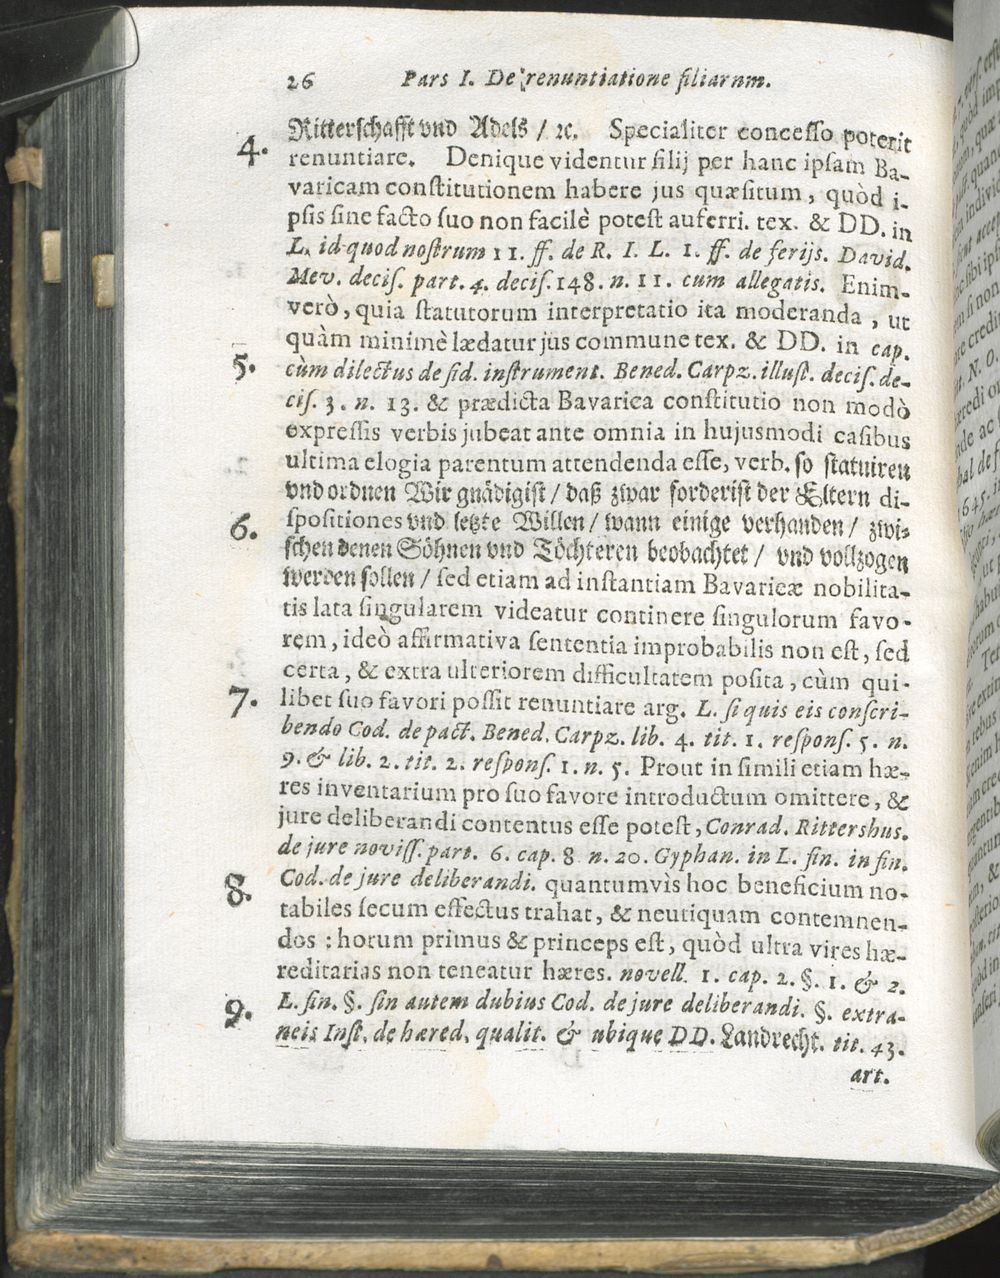 26 Pars I. De renuntiatione filiarum.
Ritterschafft vnd Adels / ꝛc. Specialiter concesso poterit
4. renuntiare. Denique videntur filij per hanc ipsam Ba-
varicam constitutionem habere jus quæsitum, quòd i-
psis sine facto suo non facilè potest auferri. tex. & DD. in
L. id quod nostrum 11. ff. de R. I. L. 1. ff. de ferijs. David.
Mev. decis. part. 4. decis. 148. n. 11. cum allegatis. Enim-
verò, quia statutorum interpretatio ita moderanda, ut
quàm minimè lædatur jus commune tex. & DD. in cap.
5. cùm dilectus de fid. instrument. Bened. Carpz. illust. decis. de-
cis. 3. n. 13. & prædicta Bavarica constitutio non modò
expressis verbis jubeat ante omnia in hujusmodi casibus
ultima elogia parentum attendenda esse, verb. so statuiren
vnd ordnen Wir gnädigist / daß zwar forderist der Eltern di-
6. spositiones vnd letzte Willen / wann einige verhanden / zwi-
schen denen Söhnen vnd Töchteren beobachtet / vnd vollzogen
werden sollen / sed etiam ad instantiam Bavaricæ nobilita-
tis lata singularem videatur continere singulorum favo-
rem, ideò affirmativa sententia improbabilis non est, sed
certa, & extra ulteriorem difficultatem posita, cùm qui-
7. libet suo favori possit renuntiare arg. L. si quis eis conscri-
bendo Cod. de pact. Bened. Carpz. lib. 4. tit. 1. respons. 5. n.
9. & lib. 2. tit. 2. respons. 1. n. 5. Prout in simili etiam hæ-
res inventarium pro suo favore introductum omittere, &
jure deliberandi contentus esse potest, Conrad. Rittershus.
de jure noviss. part. 6. cap. 8 n. 20. Gyphan. in L. fin. in fin.
8. Cod. de jure deliberandi. quantumvìs hoc beneficium no-
tabiles secum effectus trahat, & neutiquam contemnen-
dos : horum primus & princeps est, quòd ultra vires hæ-
reditarias non teneatur hæres. novell. 1. cap. 2. §. 1. & 2.
9. L. fin. §. sin autem dubius Cod. de jure deliberandi. §. extra-
neis Inst. de hæred. qualit. & ubique DD. Landrecht. tit. 43.
art.